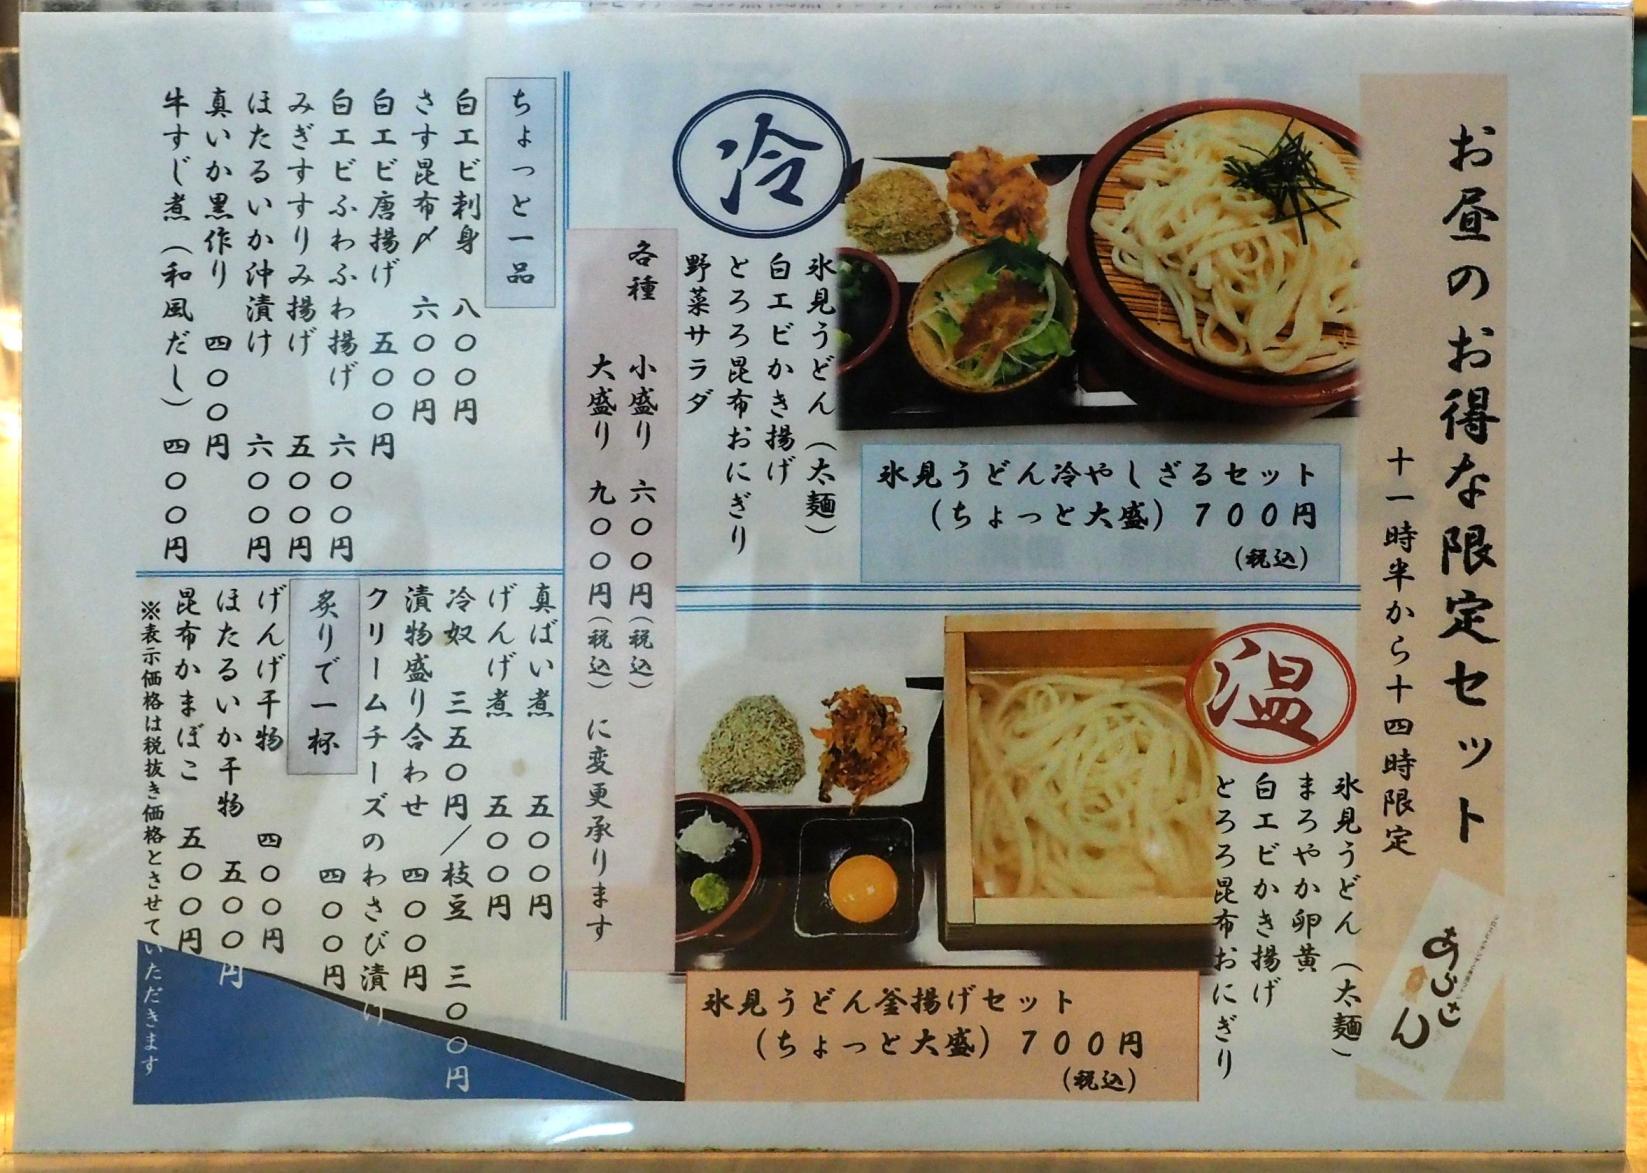 お昼のお得な限定セット
十一時半から十四時限定
冷
氷見うどん（太麺）
白エビかき揚げ
とろろ昆布おにぎり
野菜サラダ
氷見うどん冷やしざるセット
（ちょっと大盛）７００円
（税込）
温
氷見うどん（太麺）
まろやか卵黄
白エビかき揚げ
とろろ昆布おにぎり
氷見うどん釜揚げセット
（ちょっと大盛）７００円
（税込）
各種　小盛り　六〇〇円（税込）
大盛り　九〇〇円（税込）　に変更承ります
ちょっと一品
白エビ刺身　八〇〇円
さす昆布〆　六〇〇円
白エビ唐揚げ　五〇〇円
白エビふわふわ揚げ　六〇〇円
みぎすすりみ揚げ　五〇〇円
ほたるいか沖漬け　六〇〇円
真いか黒作り　四〇〇円
牛すじ煮（和風だし）　四〇〇円
真ばい煮　五〇〇円
げんげ煮　五〇〇円
冷奴　三五〇円／枝豆　三〇〇円
漬物盛り合わせ　四〇〇円
クリームチーズのわさび漬け
四〇〇円
炙りで一杯
げんげ干物　四〇〇円
ほたるいか干物　五〇〇円
昆布かまぼこ　五〇〇円
※表示価格は税抜き価格とさせていただきます